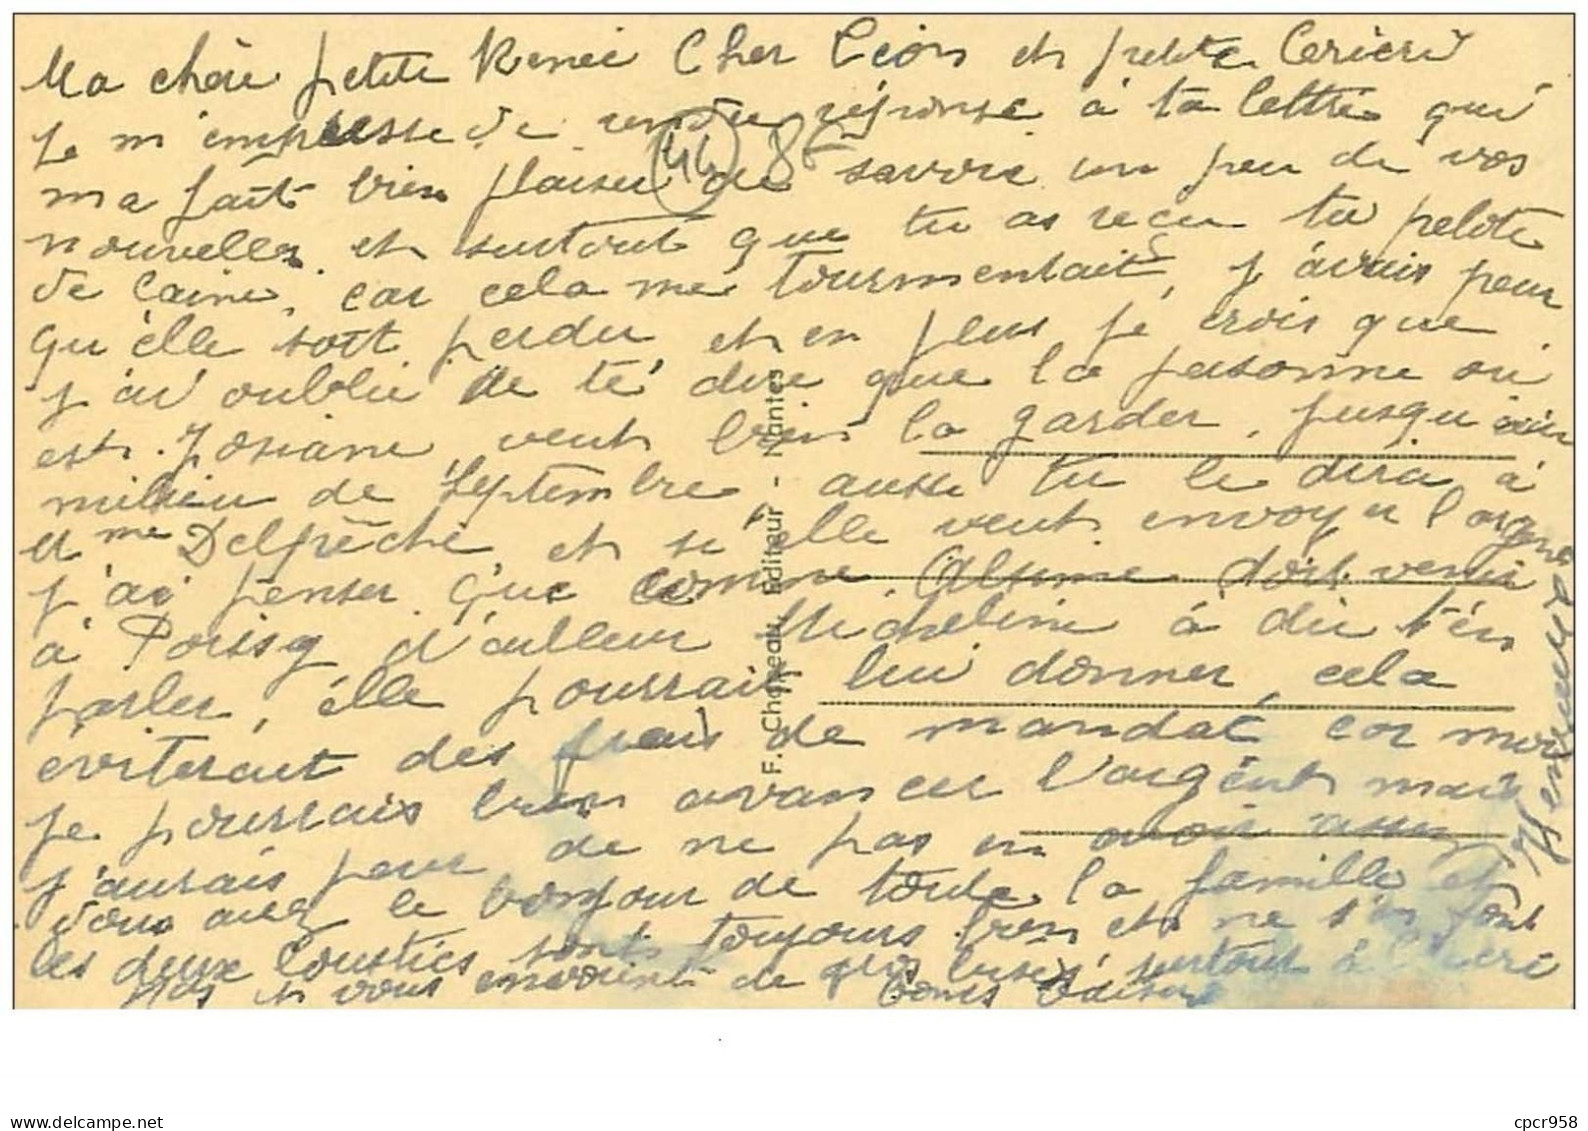 Ma chère petite Renée Cher Léon et petite Cericri
Je m'empresse de rendre réponse à ta lettre qui
ma fait bien plaisir de savoir un peu de vos
(44) 8F
nouvelles et surtout que tu as reçu ta pelote
de laine, car cela me tourmentait, j'avais peur
qu'elle soit perdu, et en plus je crois que
j'ai oublié de te dire que la personne ou
est Josiane veut bien la garder, jusqu'au
milieu de septembre, aussi tu le dira à
Mme Delpêche et si elle veut envoyer l'argent
j'ai penser que comme doit venir
à Poissy d'ailleur Micheline à dû t'en
parler, élle pourrait lui donner, cela
éviterait des frais de mandat car moi
je pourrais bien avancer l'argent mais
j'aurais peur de ne pas en avoir assez
vous avez le bonjour de toute la famille et
les deux sont toujours bien et ne s'en font
pas et vous envoient de gros surtout à Cricri
Bons Baisers
F. Chapeau, Editeur, Nantes